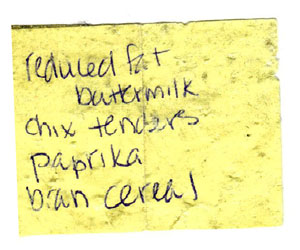 reduced fat
buttermilk
chix tenders
paprika
bran cereal